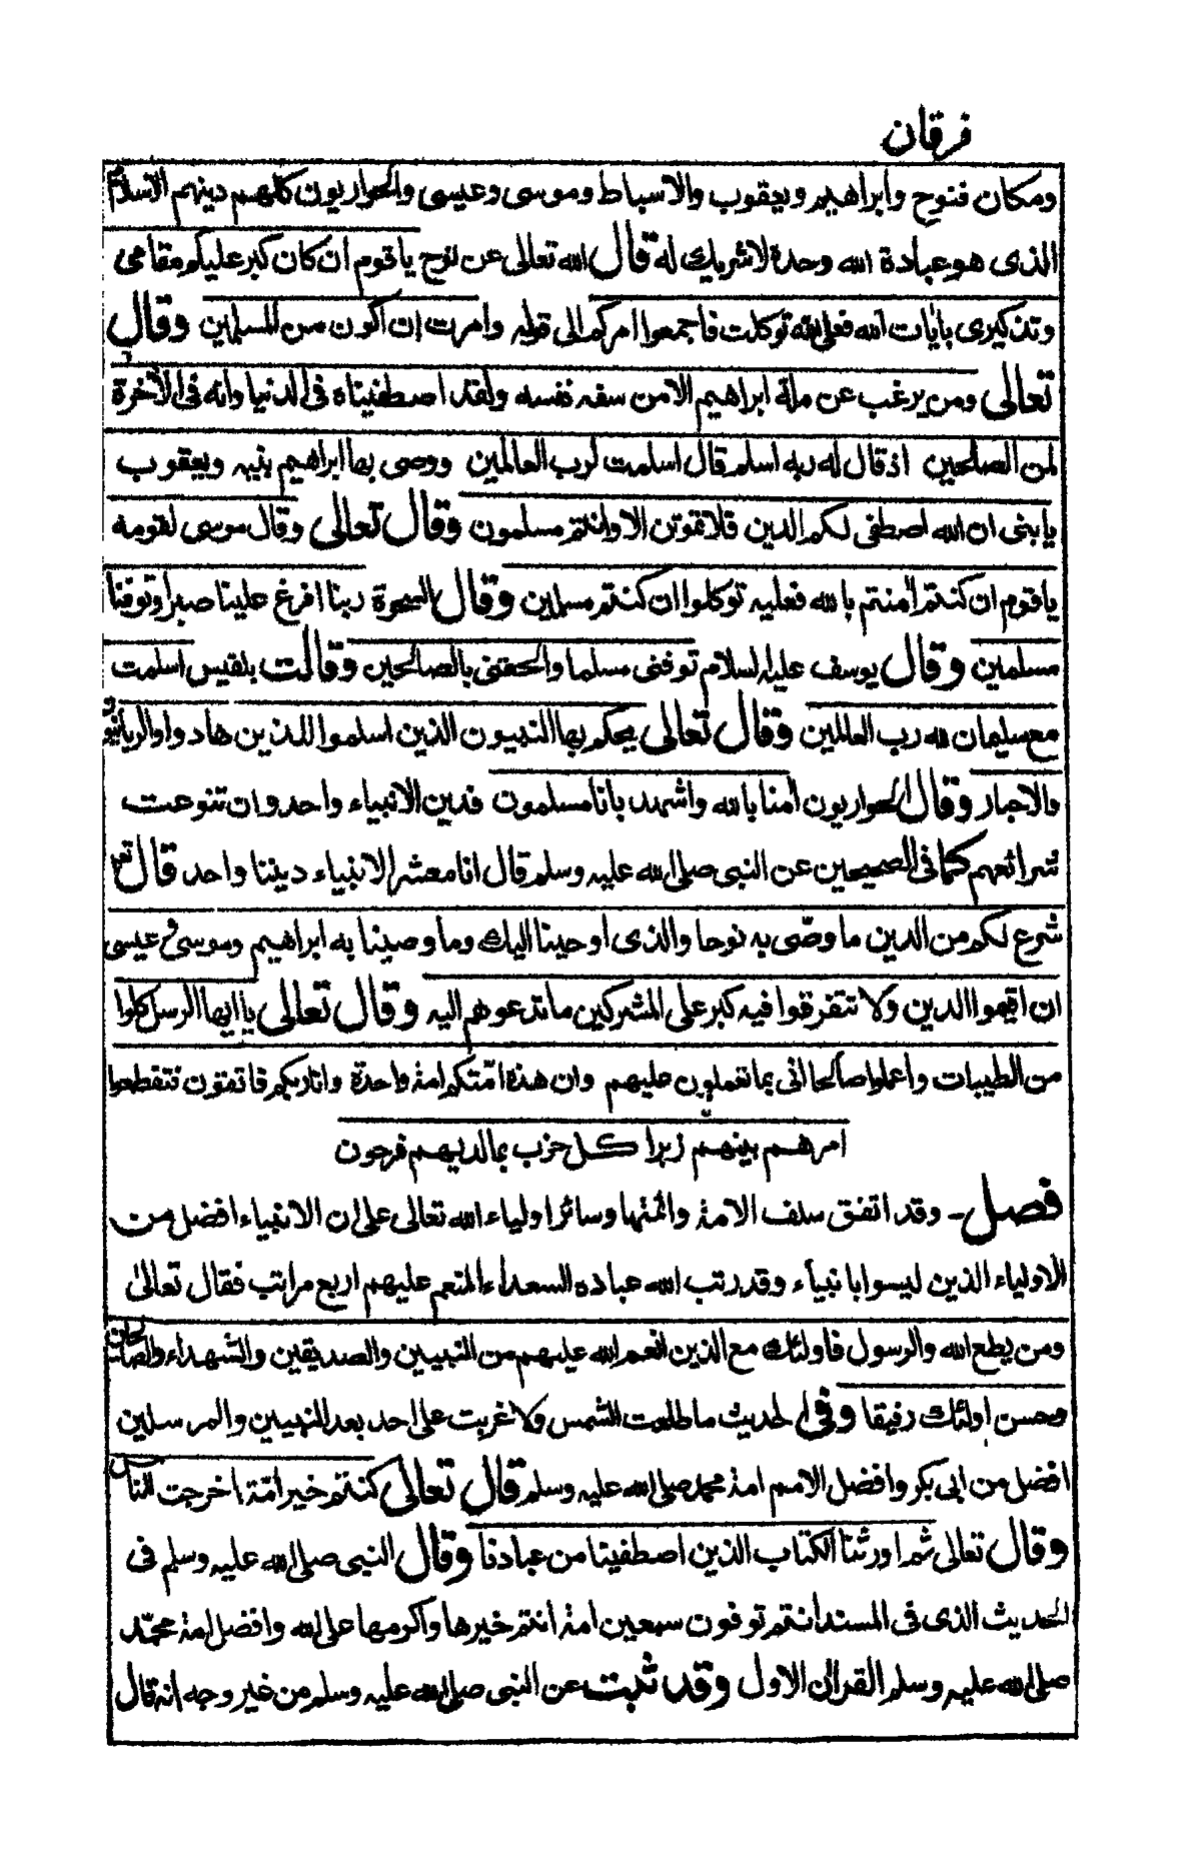 فرقان
ومكان فنوح وابراهيم ويعقوب والاسباط وموسى وعيسى والحواريون كلهم دينهم الاسلام
الذى هو عبادة الله وحدة لاشريك له قال الله تعالى عن نوح ياقوم ان كان كبر عليكم مقامى
وتذكيرى بايات الله فعلى الله توكلت فاجمعوا امركم الى قوله وامرت ان اكون من المسلمين وقال
تعالى ومن يرغب عن ملة ابراهيم الامن سفه نفسه ولقد اصطفيناه فى الدنيا وانه فى الاخرة
لمن الصلحين اذ قال له ربه اسلم قال اسلمت لرب العالمين ووصى بها ابراهيم بنيه ويعقوب
يابنى ان الله اصطفى لكم الدين فلاتموتن الا وانتم مسلمون وقال تعالى وقال موسى لقومه
ياقوم ان كنتم امنتم بالله فعليه توكلوا ان كنتم مسلمين وقال السحرة ربنا افرغ علينا صبرا وتوفنا
مسلمين وقال يوسف عليه السلام توفنى مسلما والحقنى بالصالحين وقالت بلقيس اسلمت
مع سليمان لله رب العالمين وقال تعالى يحكم بها النبيون الذين اسلموا للذين هادوا والربانيون
والاحبار وقال الحواريون امنا بالله واشهد بانا مسلمون فدين الانبياء واحد وان تنوعت
شرائعهم كما فى الصحيحين عن النبى صلى الله عليه وسلم قال انا معشر الانبياء ديننا واحد قال تعا
شرع لكم من الدين ما وصّى به نوحا والذى اوحينا اليك وما وصينا به ابراهيم وموسى وعيسى
ان اقيموا الدين ولا تتفرقوا فيه كبر على المشركين ماتدعوهم اليه وقال تعالى ياايها الرسل كلوا
من الطيبات واعملوا صالحا انى بما تعملون عليهم وان هذه امّتكم امة واحدة وانا ربكم فاتقون فتقطعوا
امرهم بينهم زبرا كل حزب بما لديهم فرحون
فصل وقد اتفق سلف الامة وائمتها وسائر اولياء الله تعالى على ان الانبياء افضل من
الاولياء الذين ليسوا بانبياء وقد رتب الله عباده السعداء المنعم عليهم اربع مراتب فقال تعالى
ومن يطع الله والرسول فاولئك مع الذين انعم الله عليهم من النبيين والصديقين والشهداء والصالحين
وحسن اولئك رفيقا وفى الحديث ما طلعت الشمس ولا غربت على احد بعد النبيين والمرسلين
افضل من ابى بكر وافضل الامم امة محمد صلى الله عليه وسلم قال تعالى كنتم خير امّة اخرجت للناس
وقال تعالى ثم اورثنا الكتاب الذين اصطفينا من عبادنا وقال النبى صلى الله عليه وسلم فى
الحديث الذى فى المسند انتم توفون سبعين امة انتم خيرها واكرمها على الله وافضل امة محمّد
صلى الله عليه وسلم القران الاول وقد ثبت عن النبى صلى الله عليه وسلم من غير وجه انه قال